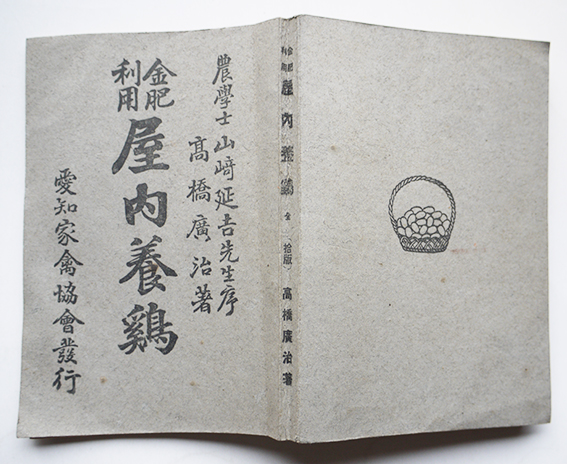 農學士山﨑延吉先生序
髙橋廣治著
金肥利用
屋内養鷄
愛知家禽協會發行
金肥利用 屋内養鷄 全 (拾版) 髙橋廣治著